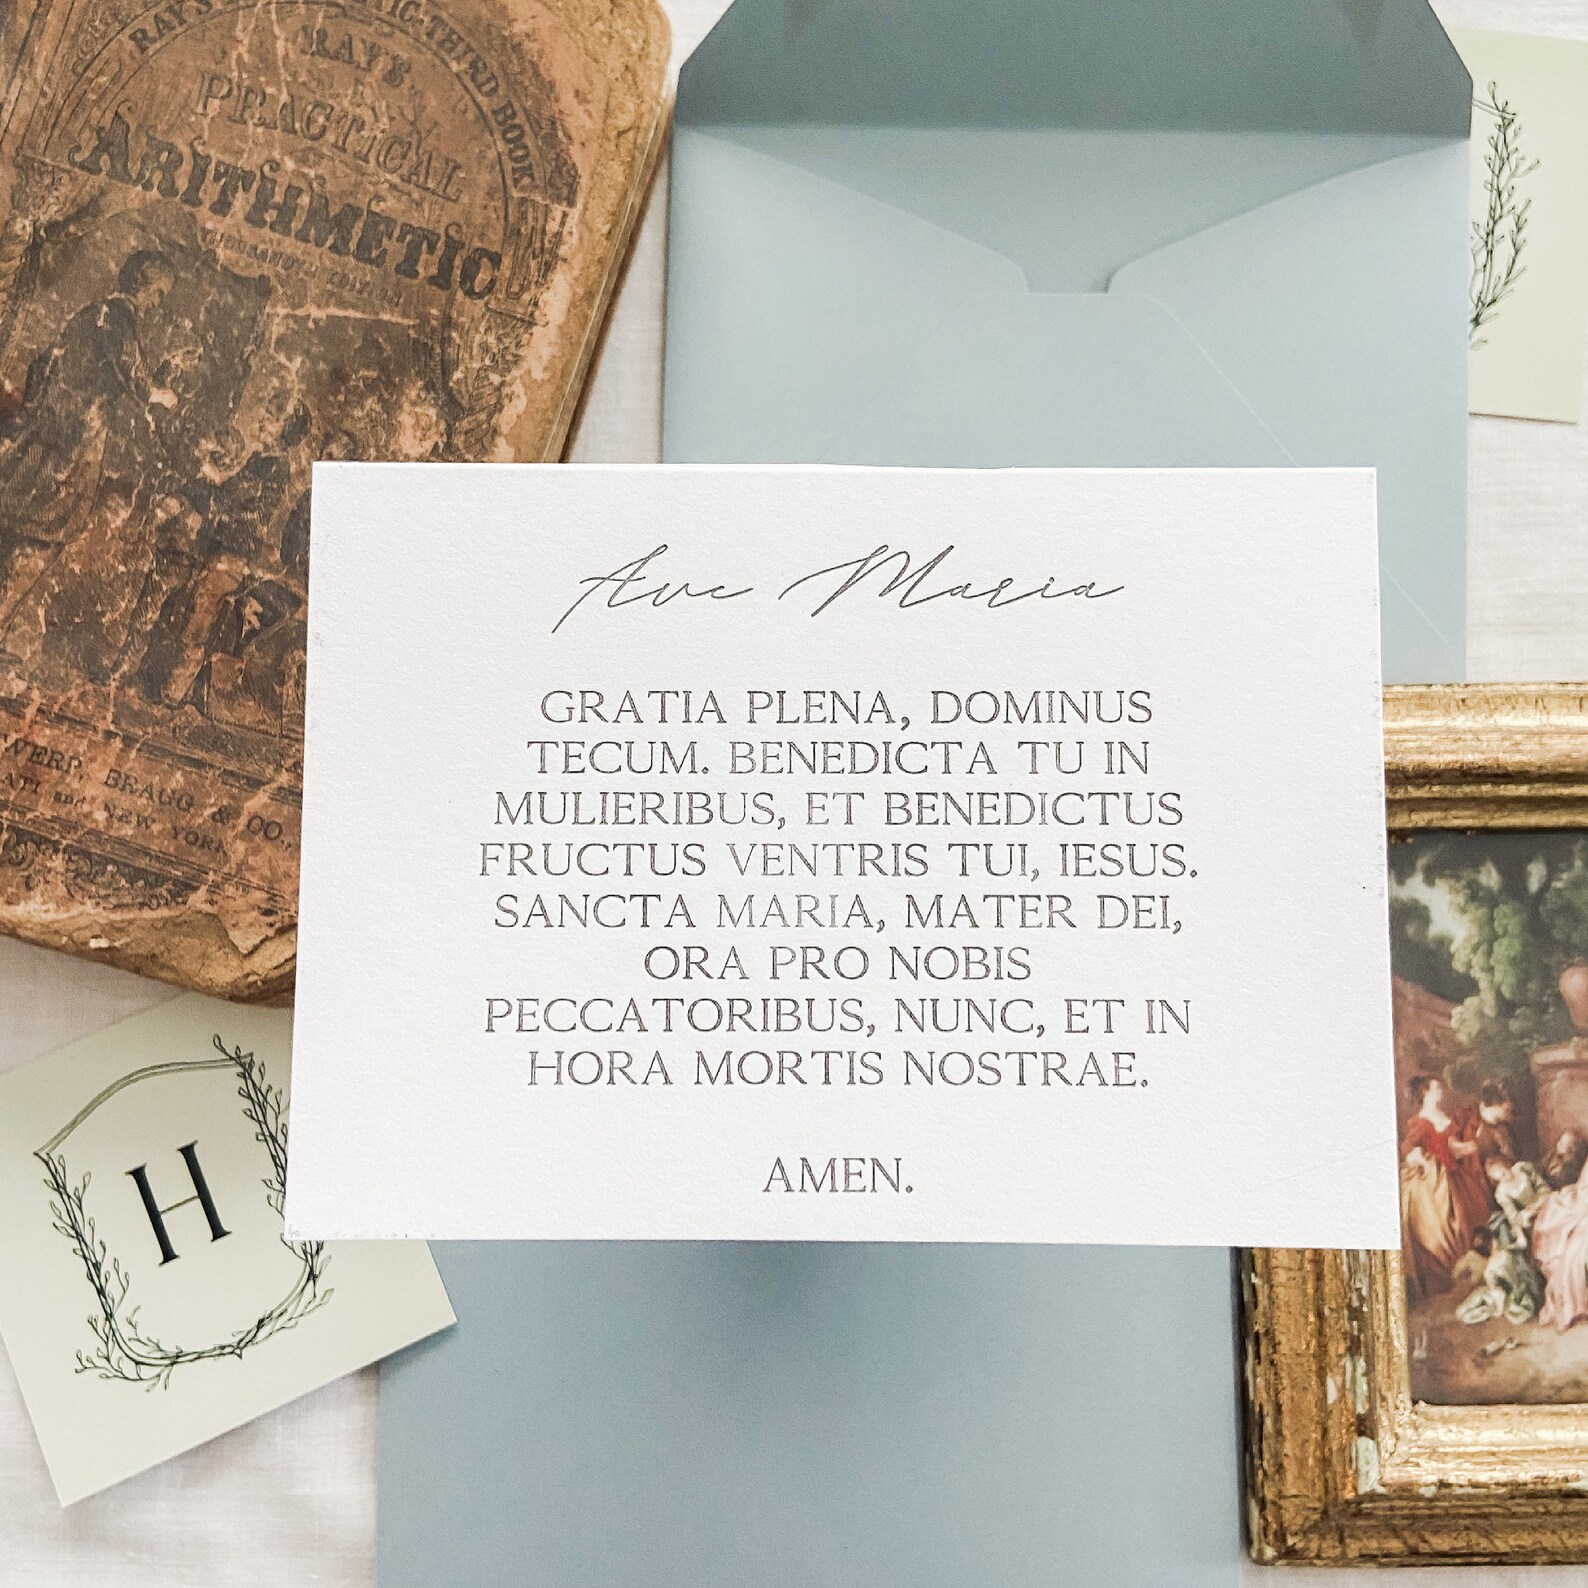 RAY'S
PRACTICAL
ARITHMETIC
THIRD BOOK
WERP, BRAGG & CO.,
ATI and NEW YORK
Ave Maria
GRATIA PLENA, DOMINUS
TECUM. BENEDICTA TU IN
MULIERIBUS, ET BENEDICTUS
FRUCTUS VENTRIS TUI, IESUS.
SANCTA MARIA, MATER DEI,
ORA PRO NOBIS
PECCATORIBUS, NUNC, ET IN
HORA MORTIS NOSTRAE.
AMEN.
H